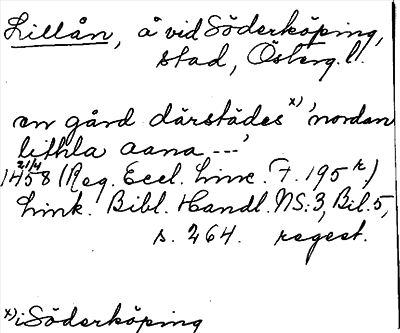 Lillån, å vid Söderköping,
stad, Österg. l.
en gård därstädes x) 'nordan
lithla aana ---'
21/4
1458 (Reg. Eccl. Linc. F. 195 r)
Link. Bibl. Handl. NS:3, Bil. 5,
s. 264. regest.
x) i Söderköping